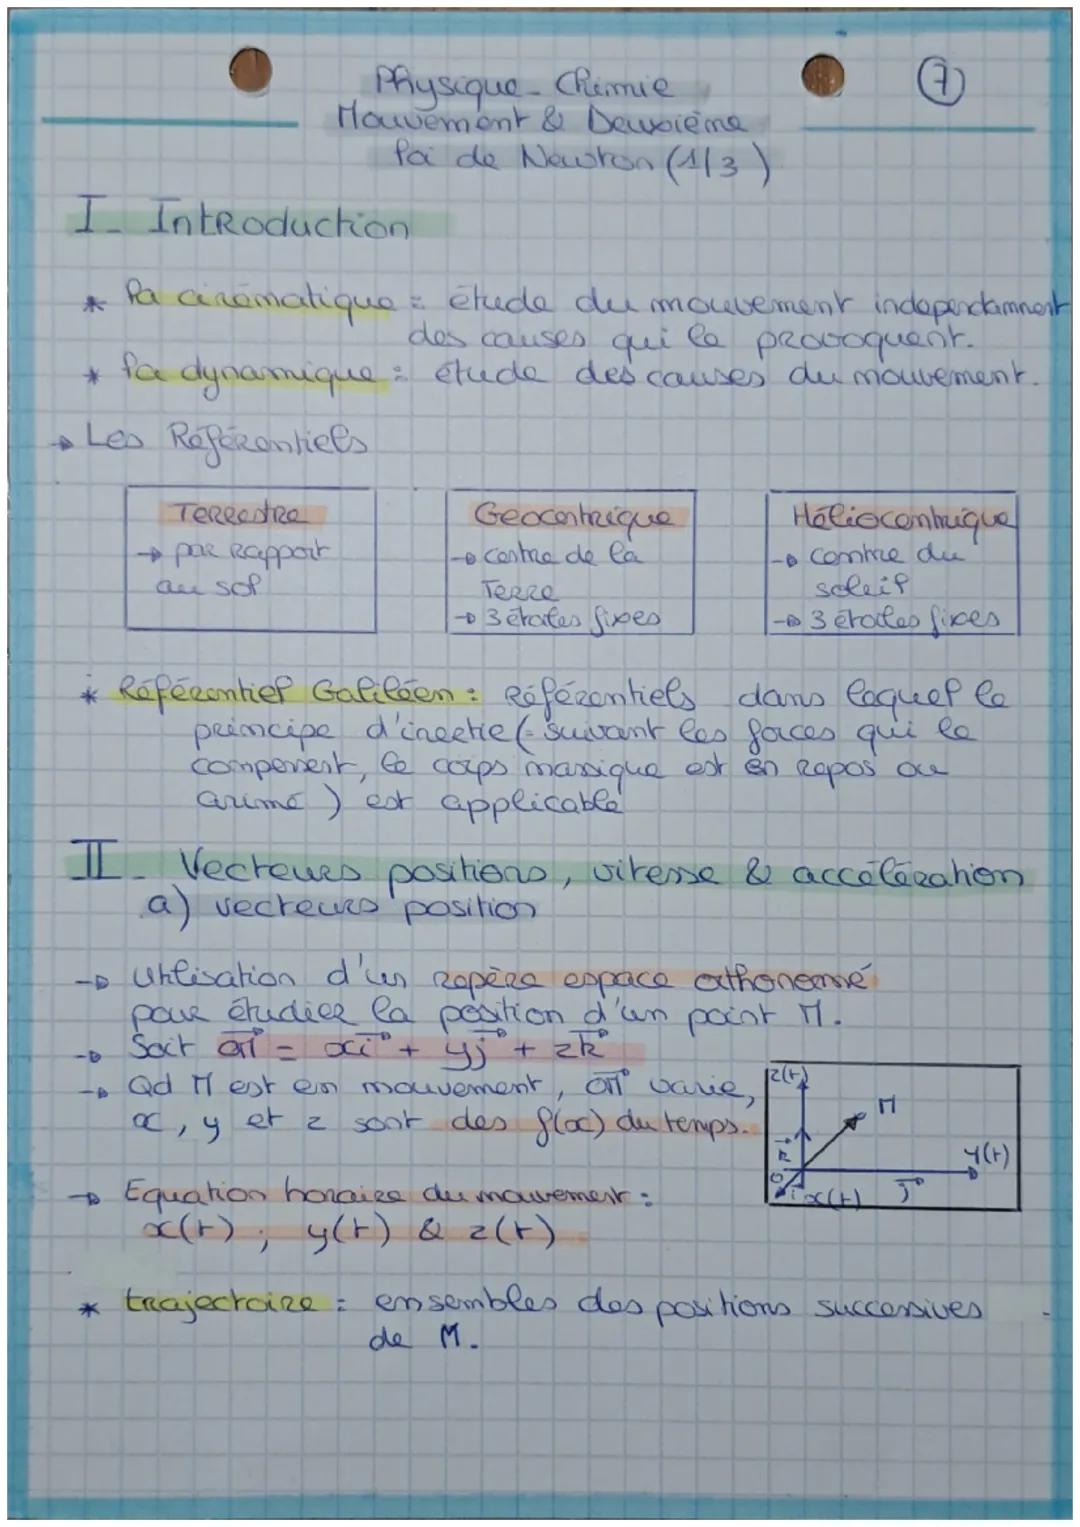 7
Physique - Chimie
Mouvement & Deuxième
loi de Newton (1/3)
I - Introduction
* la cinématique = étude du mouvement indépendamment
des causes qui le provoquent.
* la dynamique = étude des causes du mouvement.
→ Les Référentiels
Terrestre
→ par rapport
au sol
Géocentrique
→ centre de la
Terre
→ 3 étoiles fixes
Héliocentrique
→ centre du
soleil
→ 3 étoiles fixes
* Référentiel Galiléen : Référentiels dans lequel le
principe d'inertie (= suivant les forces qui le
composent, le corps massique est en repos ou
animé) est applicable
II - Vecteurs positions, vitesse & accélération
a) vecteurs position
→ Utilisation d'un repère espace orthonormé
pour étudier la position d'un point M.
→ Soit OM⃗ = xi⃗ + yj⃗ + zk⃗
→ Qd M est en mouvement, OM⃗ varie,
x, y et z sont des f(x) du temps.
z(t)
M
k⃗
y(t)
O
i⃗ x(t) j⃗
→ Equation horaire du mouvement :
x(t) ; y(t) & z(t)
* trajectoire = ensembles des positions successives
de M.